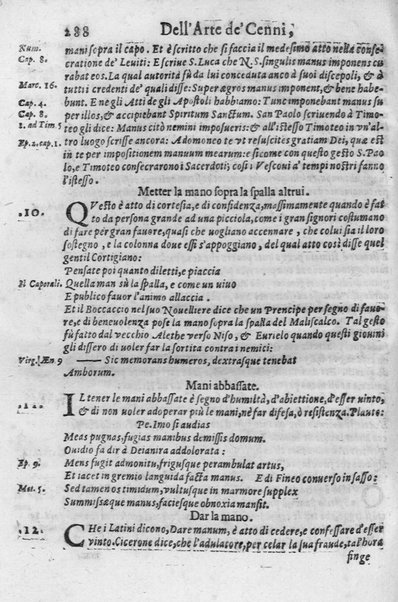 288 Dell'Arte de' Cenni,
Num. mani sopra il capo. Et è scritto che si faccia il medesimo atto nella conse-
Cap. 8. cratione de' Leuiti: Escriue S. Luca che N. S. singulis manus imponens cu
rabat eos. La qual autorità fù da lui conceduta anco à suoi discepoli, & à
Marc. 16. tutti i credenti de' qual disse: Super ægros manus imponent, & bene habe-
Cap. 4. bunt. E ne gli Atti de gli Apostoli habbiamo: Tunc imponebant manus su
Cap. 8. per illos, & accipiebant Spiritum Sanctum. San Paolo scriuendo à Timo-
1. ad Tim. 5 teo gli dice: Manus citò nemini imposueris: & all'istesso Timoteo in vn'al-
Ep. 2. cap. 1. tro luogo scrisse ancora: Admoneo te vt resuscites gratiam Dei, quæ est
in te per impositionem manuum mearum: e si come con questo gesto S. Pao
lo, e Timoteo consecrarono i Sacerdoti; così i Vescoui a' tempi nostri fanno
l'istesso.
Metter la mano sopra la spalla altrui.
.10. Qvesto è atto di cortesia, e di confidenza, massimamente quando è fat
to da persona grande ad una picciola, come i gran signori costumano
di fare per gran fauore, quasi che uogliano accennare, che colui sia il loro
sostegno, e la colonna doue essi s'appoggiano, del qual atto così disse quel
gentil Cortigiano:
Pensate poi quanto diletti, e piaccia
Il Caporali. Quella man sù la spalla, e come un uiuo
E publico fauor l'animo allaccia.
Et il Boccaccio nel suo Nouelliere dice che un Prencipe per segno di fauo-
re, e di beneuolenza pose la mano sopra la spalla del Maliscalco. Tal gesto
fù fatto dal vecchio Alethe verso Niso, & Eurielo quando questi giouini
gli dissero di uoler far la sortita contra i nemici:
Virg. Æn. 9 —— Sic memorans humeros, dextrasque tenebat
Amborum.
Mani abbassate.
.11. Il tener le mani abbassate è segno d'humiltà, d'abiettione, d'esser uinto,
& di non uoler adoperar più le mani, nè far difesa, ò resistenza. Plauto:
Pe. Imo si audias
Meas pugnas, fugias manibus demissis domum.
Ouidio fa dir à Deianira addolorata:
Ep. 9. Mens fugit admonitu, frigusque perambulat artus,
Et iacet in gremio languida facta manus. E di Fineo conuerso in sasso:
Met. 5. Sed tamen os timidum, vultusque in marmore supplex
Summissæque manus, faciesque obnoxia mansit.
Dar la mano.
.12. Che i Latini dicono, Dare manum, è atto di cedere, e confessare d'esser
vinto. Cicerone dice, che l'adulatore, per celar la sua fraude, talhora
finge